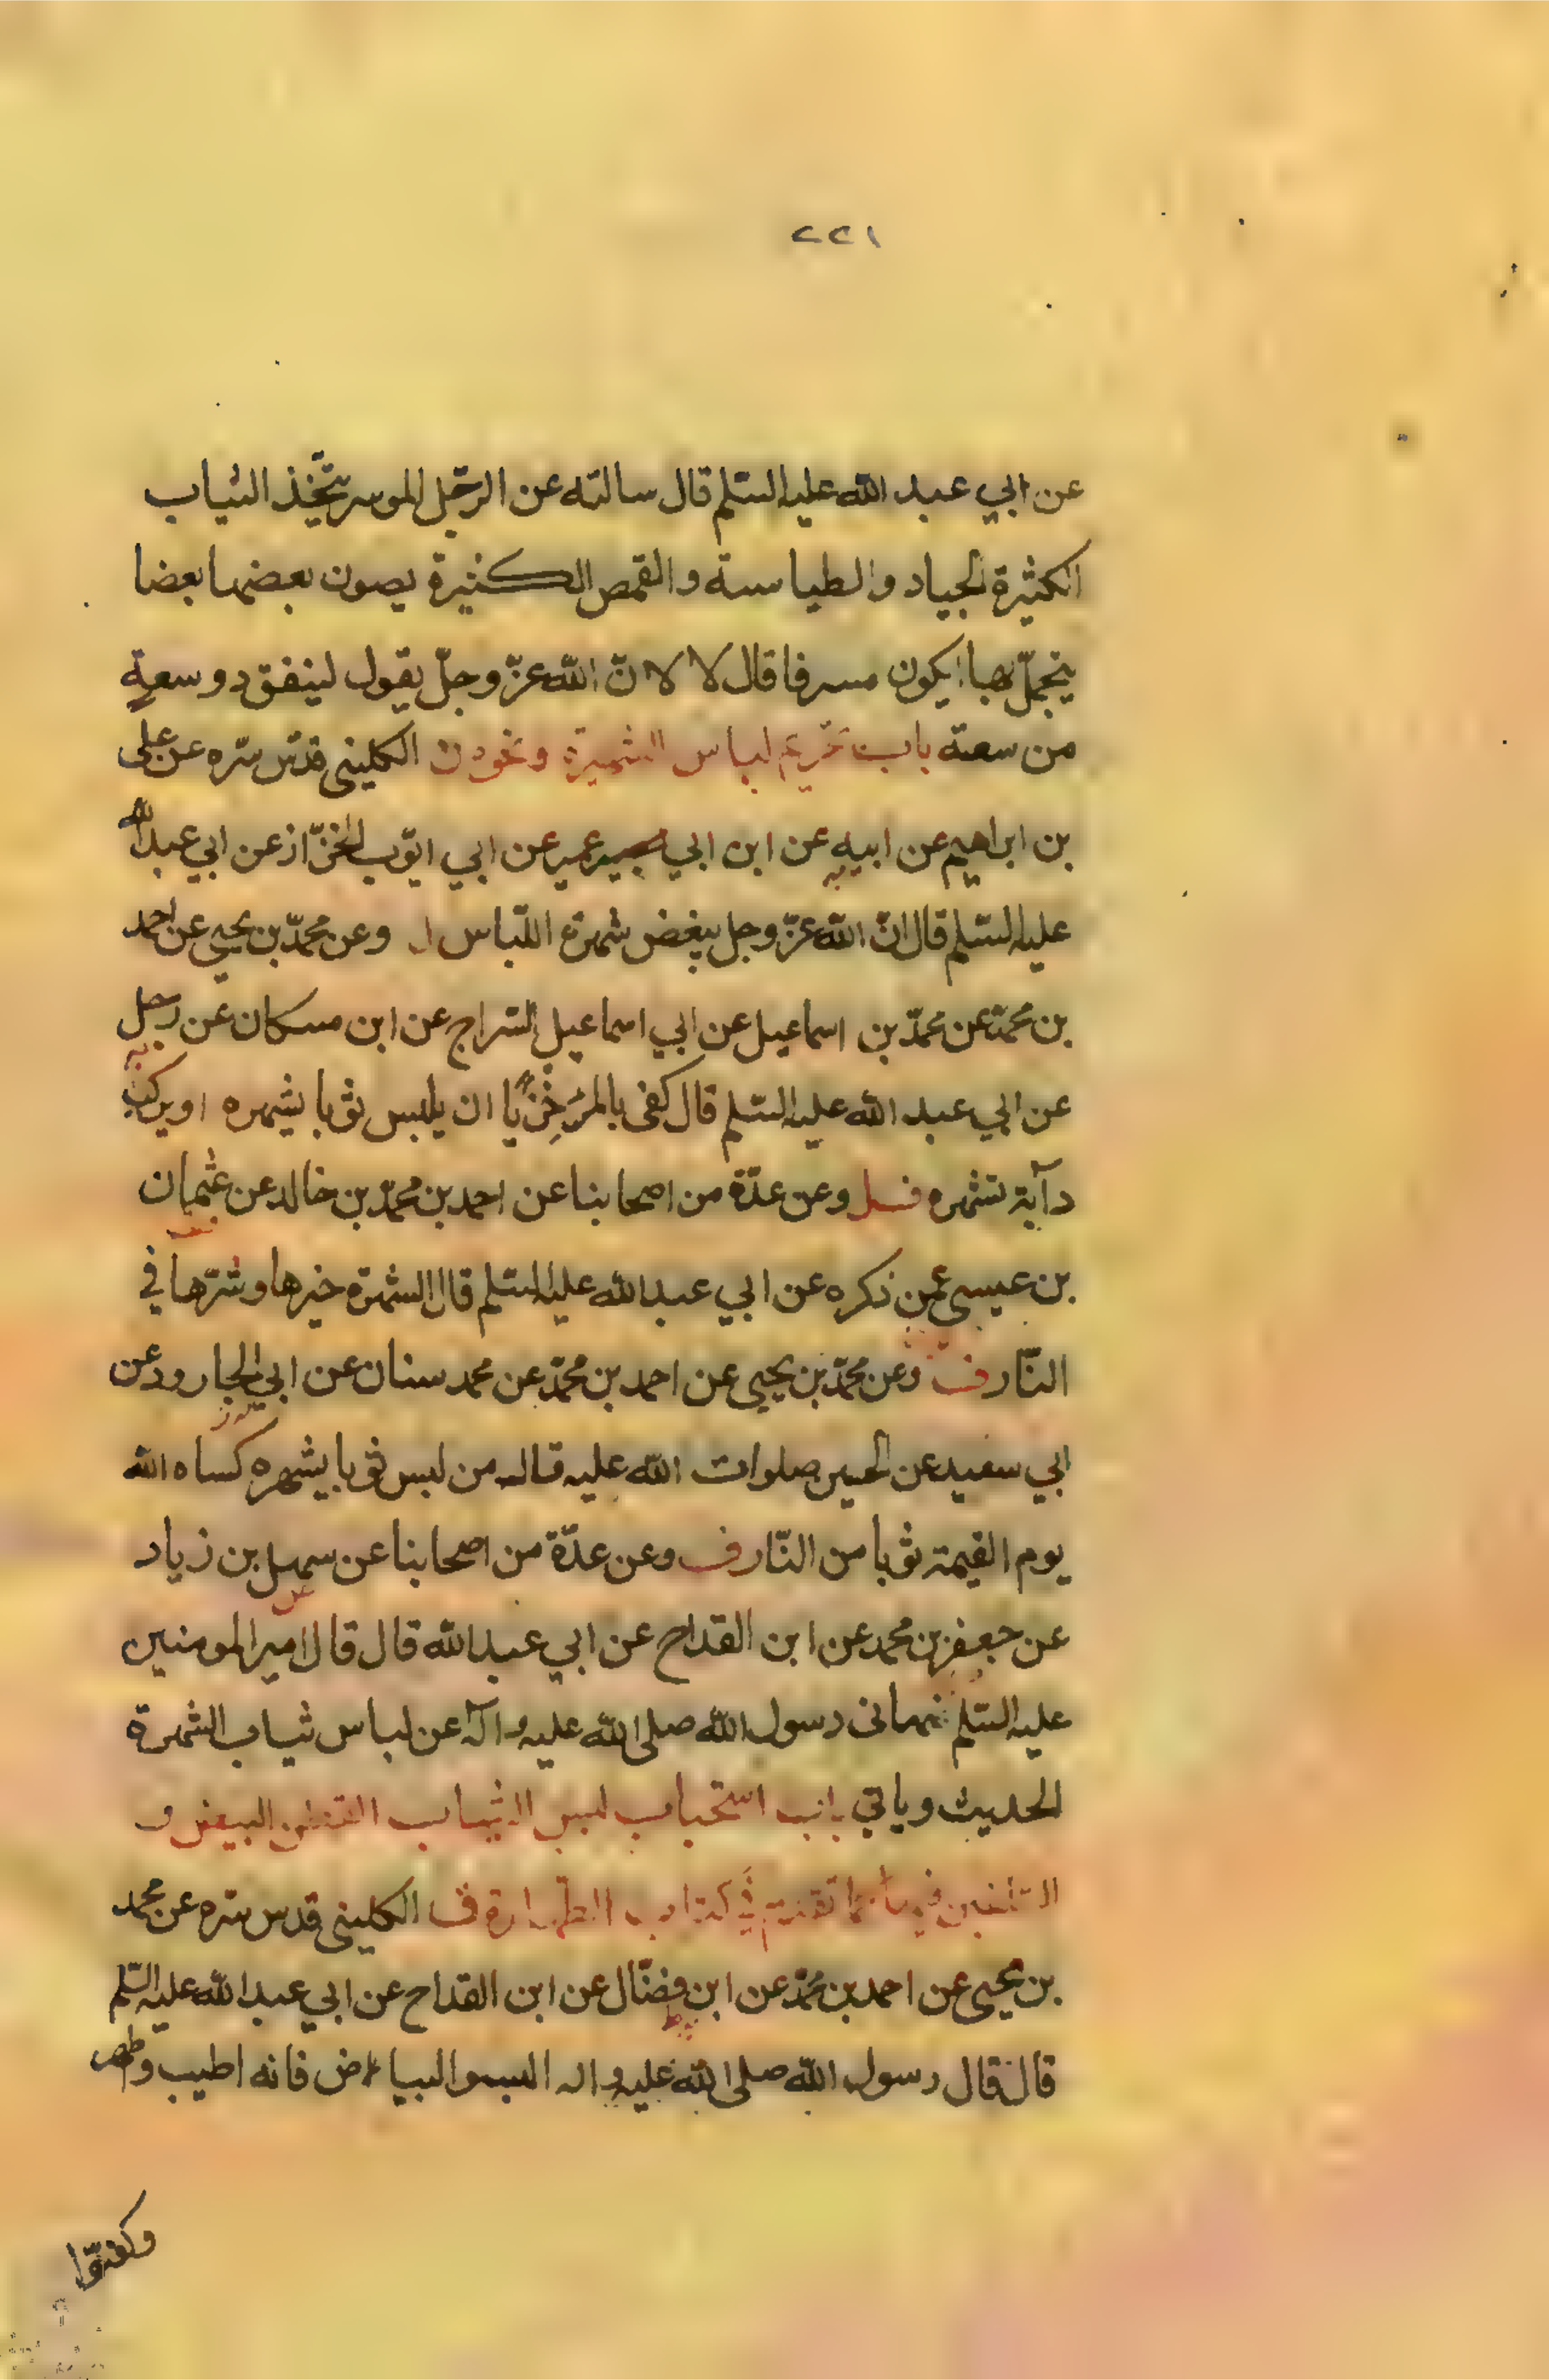 ٢٢١
عن ابي عبد الله عليه السّلم قال سالته عن الرّجل الموسر يتّخذ الثياب
الكثيرة الجياد والطيالسة والقمص الكثيرة يصون بعضها بعضا
يتجمّل بها ايكون مسرفا قال لا لانّ الله عزّ وجلّ يقول لينفق ذو سعة
من سعته باب تحريم لباس الشهرة ونحوه الكليني قدّس سّره عن علي
بن ابراهيم عن ابيه عن ابن ابي عمير عن ابي ايّوب الخزّاز عن ابي عبد الله
عليه السّلم قال انّ الله عزّ وجل يبغض شهرة اللّباس وعن محمّد بن يحيى عن احمد
بن محمّد عن محمّد بن اسماعيل عن ابي اسماعيل السّراج عن ابن مسكان عن رجل
عن ابي عبد الله عليه السّلم قال كفى بالمرء خزيًا ان يلبس ثوبا يشهره او يركب
دآبة تشهره وعن عدّة من اصحابنا عن احمد بن محمّد بن خالد عن عثمان
بن عيسى عمّن ذكره عن ابي عبد الله عليه السّلم قال الشهرة خيرها وشرّها في
النّار وعن محمّد بن يحيى عن احمد بن محمّد عن محمد سنان عن ابي الجارود عن
ابي سعيد عن الحسين صلوات الله عليه قال من لبس ثوبا يشهره كساه الله
يوم القيمة ثوبا من النّار وعن عدّة من اصحابنا عن سهل بن زياد
عن جعفر بن محمد عن ابن القداح عن ابي عبد الله قال قال امير المومنين
عليه السّلم نهاني رسول الله صلى الله عليه واله عن لباس ثياب الشهرة
الحديث وياتي باب استحباب لبس الثياب القطن البيض و
تقدّم في كتاب الطّهارة الكليني قدس سّره عن محمد
بن يحيى عن احمد بن محمّد عن ابن فضّال عن ابن القداح عن ابي عبد الله عليه السّلم
قال قال رسول الله صلى الله عليه واله البسوا البياض فانه اطيب واطهر
وكفنوا